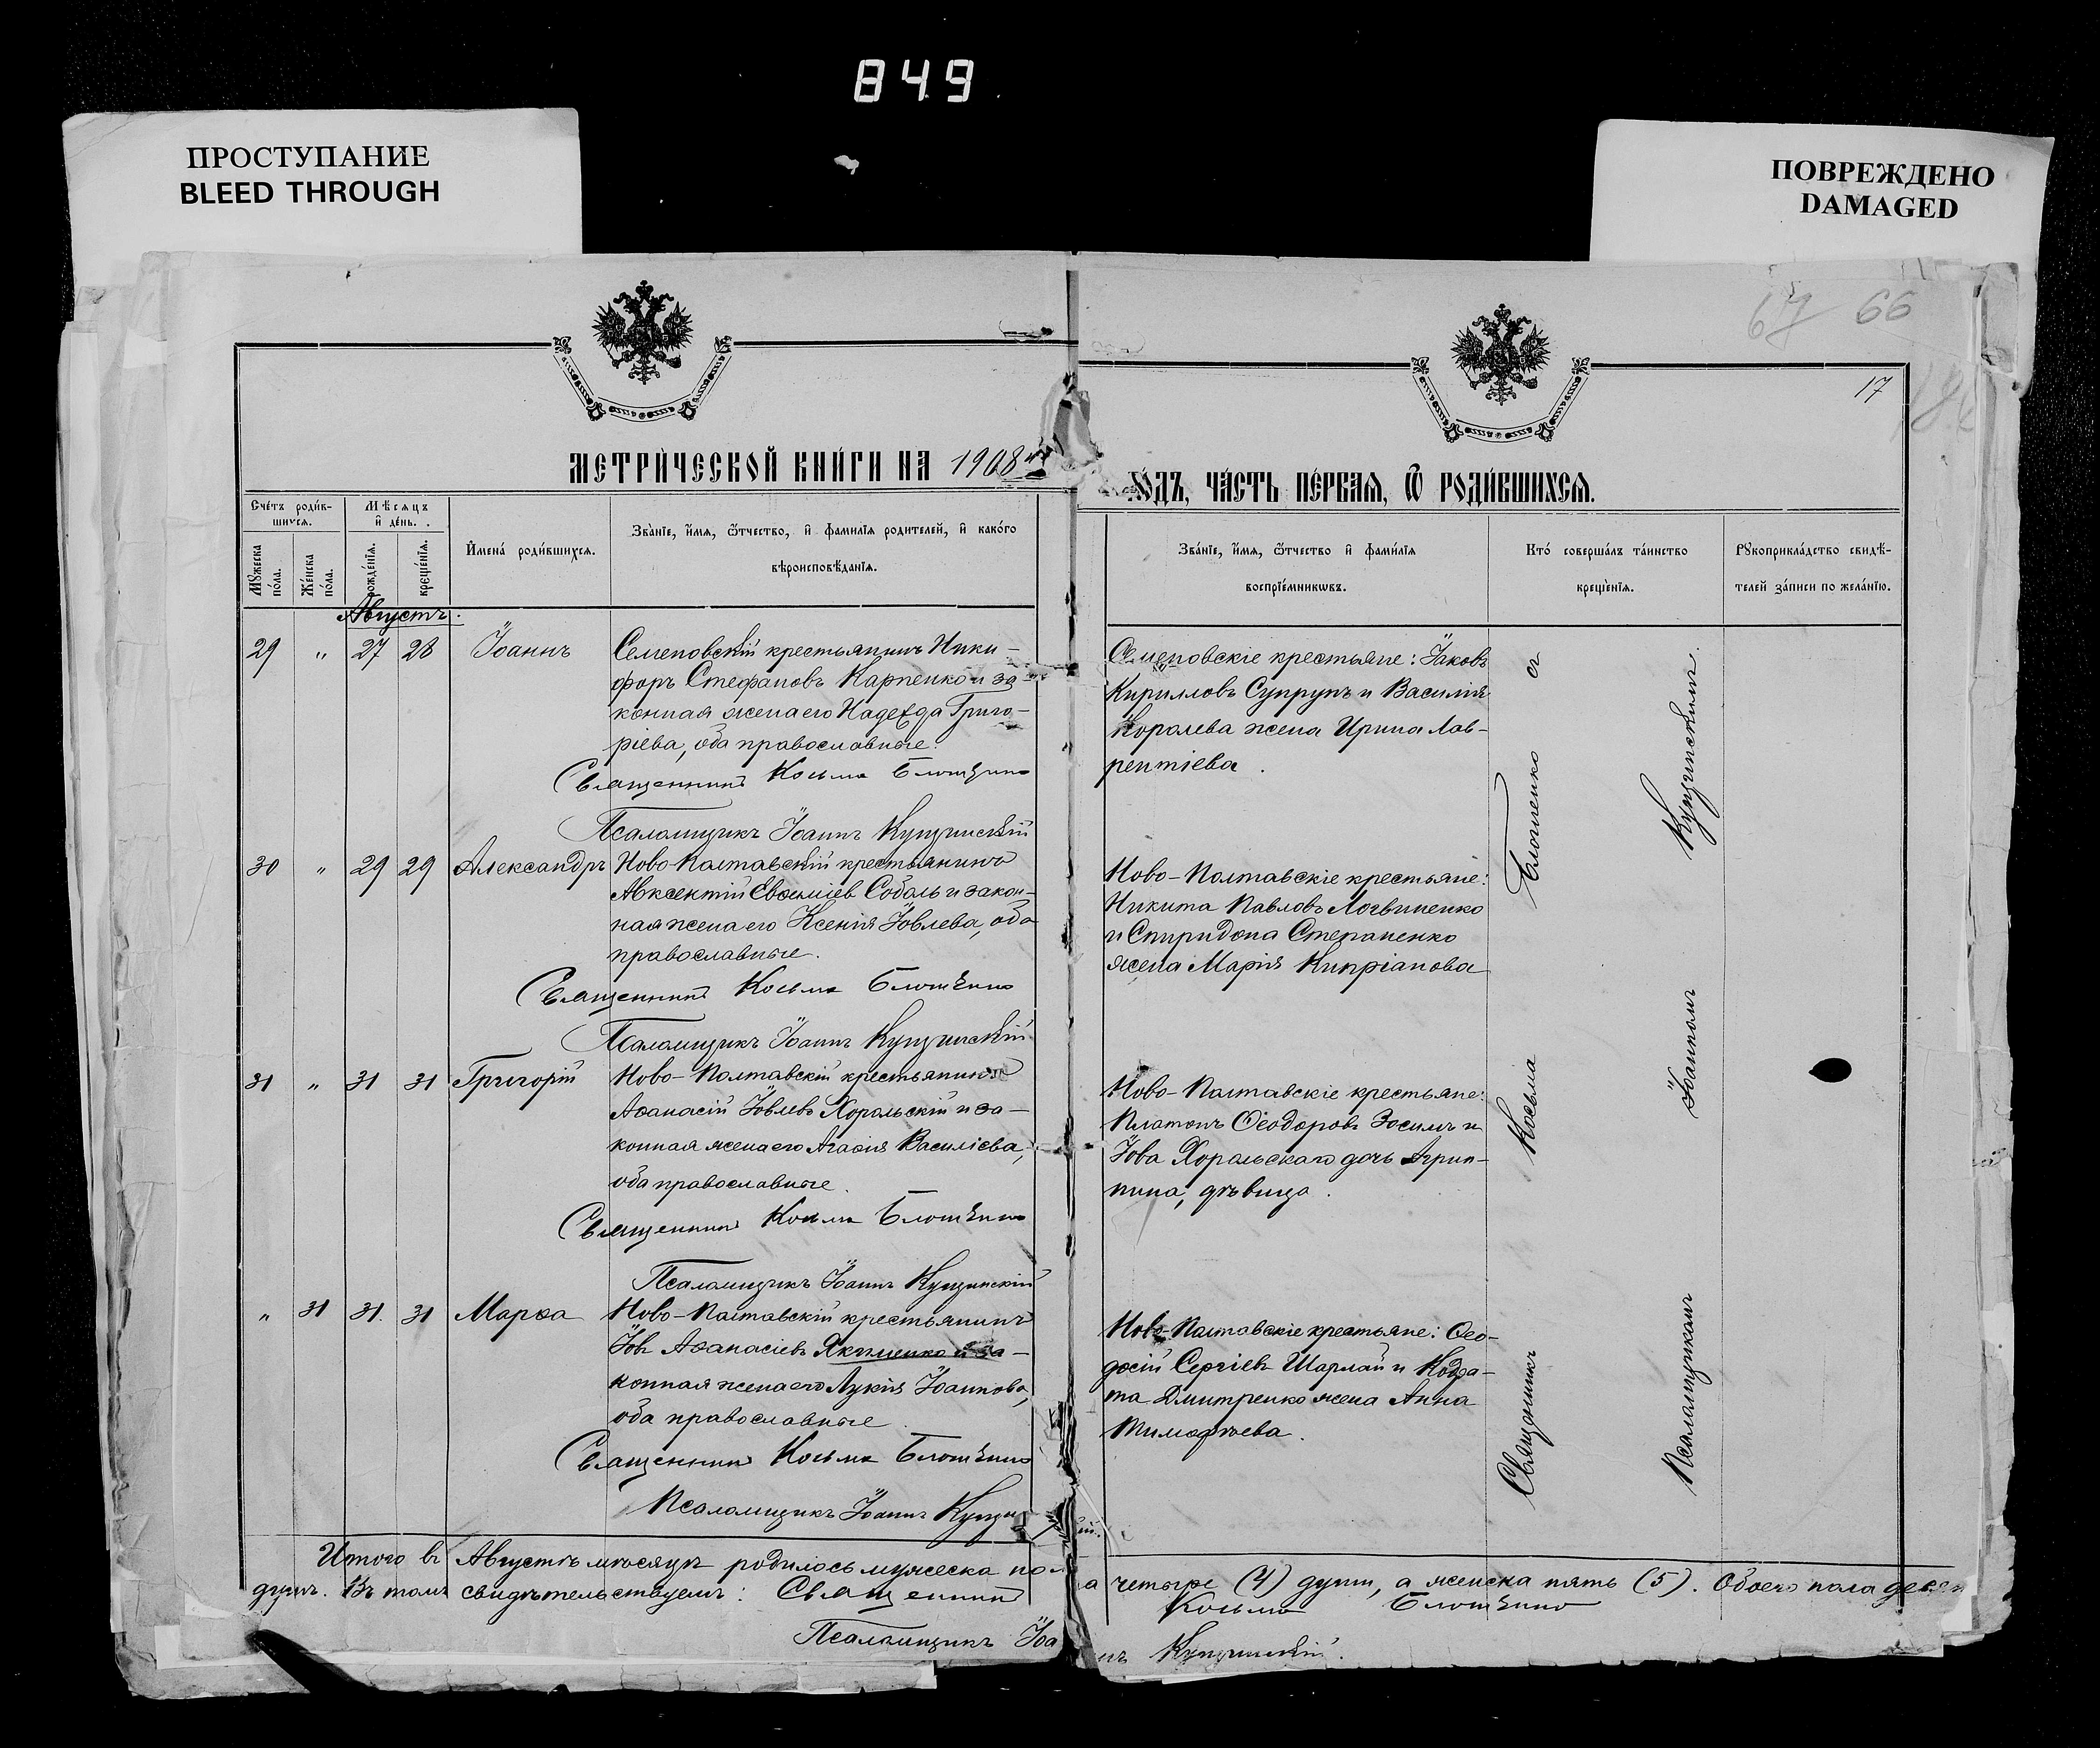 849
ПРОСТУПАНИЕ
BLEED THROUGH
ПОВРЕЖДЕНО
DAMAGED
67 66
17
МЕТРИ́ЧЕСКОЙ КНИ́ГИ НА 1908й
ГО́ДЪ, ЧА́СТЬ ПЕ́РВАѦ, Ѿ РОДИ́ВШИХСѦ.
Сче́тъ роди́в-
шихсѧ.
Мꙋжеска
по́ла.
Же́нска
по́ла.
Мѣ́сѧцъ
и҆ де́нь.
рожде́нїѧ.
креще́нїѧ.
И҆мена́ роди́вшихсѧ.
Зва́нїе, и҆́мѧ, ѻ҆́тчество, и҆ фамилїѧ родителей, и҆ како́гѡ
вѣроисповѣ́данїѧ.
Зва́нїе, и҆́мѧ, ѻ҆́тчество и҆ фами́лїѧ
воспрїе́мникѡвъ.
Кто́ соверша́лъ та́инство
креще́нїѧ.
Рꙋкоприкла́дство свидѣ́-
телей за́писи по жела́нїю.
Августъ.
29 „ 27 28 Іоаннъ
Семеновскій крестьянинъ Ники-
форъ Стефановъ Карпенко и за-
конная жена его Надежда Григо-
ріева, оба православные.
Священникъ Косьма
Псаломщикъ Іоаннъ
Семеновскіе крестьяне: Іаковъ
Кирилловъ Супрунъ и Василія
Королева жена Ирина Лав-
рентіева.
30 „ 29 29 Александръ
Ново-Полтавскій крестьянинъ
Авксентій Евѳиміев Соболь и закон-
ная жена его Ксенія Іовлева, оба
православные.
Священникъ Косьма
Псаломщикъ Іоаннъ
Ново-Полтавскіе крестьяне:
Никита Павловъ Логвиненко
и Спиридона Степаненко
жена Марія Кипріанова
31 „ 31 31 Григорій
Ново-Полтавскій крестьянинъ
Аѳанасій Іовлевъ Хорольскій и за-
конная жена его Агаѳія Василіева,
оба православные.
Священникъ Косьма
Псаломщикъ Іоаннъ
Ново-Полтавскіе крестьяне:
Платонъ Ѳеодоровъ Зосимъ и
Іова Хорольскаго дочь Агрип-
пина, дѣвица.
„ 31 31. 31 Марѳа
Ново-Полтавскій крестьянинъ
Іовъ Аѳанасіевъ Якименко и за-
конная жена его Лукія Іоаннова,
оба православные.
Священникъ Косьма
Псаломщикъ Іоаннъ
Ново-Полтавскіе крестьяне: Ѳео-
досій Сергіевъ Шарлай и Кодра-
та Дмитренко жена Анна
Тимофѣева.
Священникъ Косьма
съ
Псаломщикомъ Іоанномъ
Итого въ Августѣ мѣсяцѣ родилось мужеска пола четыре (4) души, а женска пять (5). Обоего пола
душъ. Въ томъ свидѣтельствуемъ: Священникъ Косьма
Псаломщикъ Іоаннъ